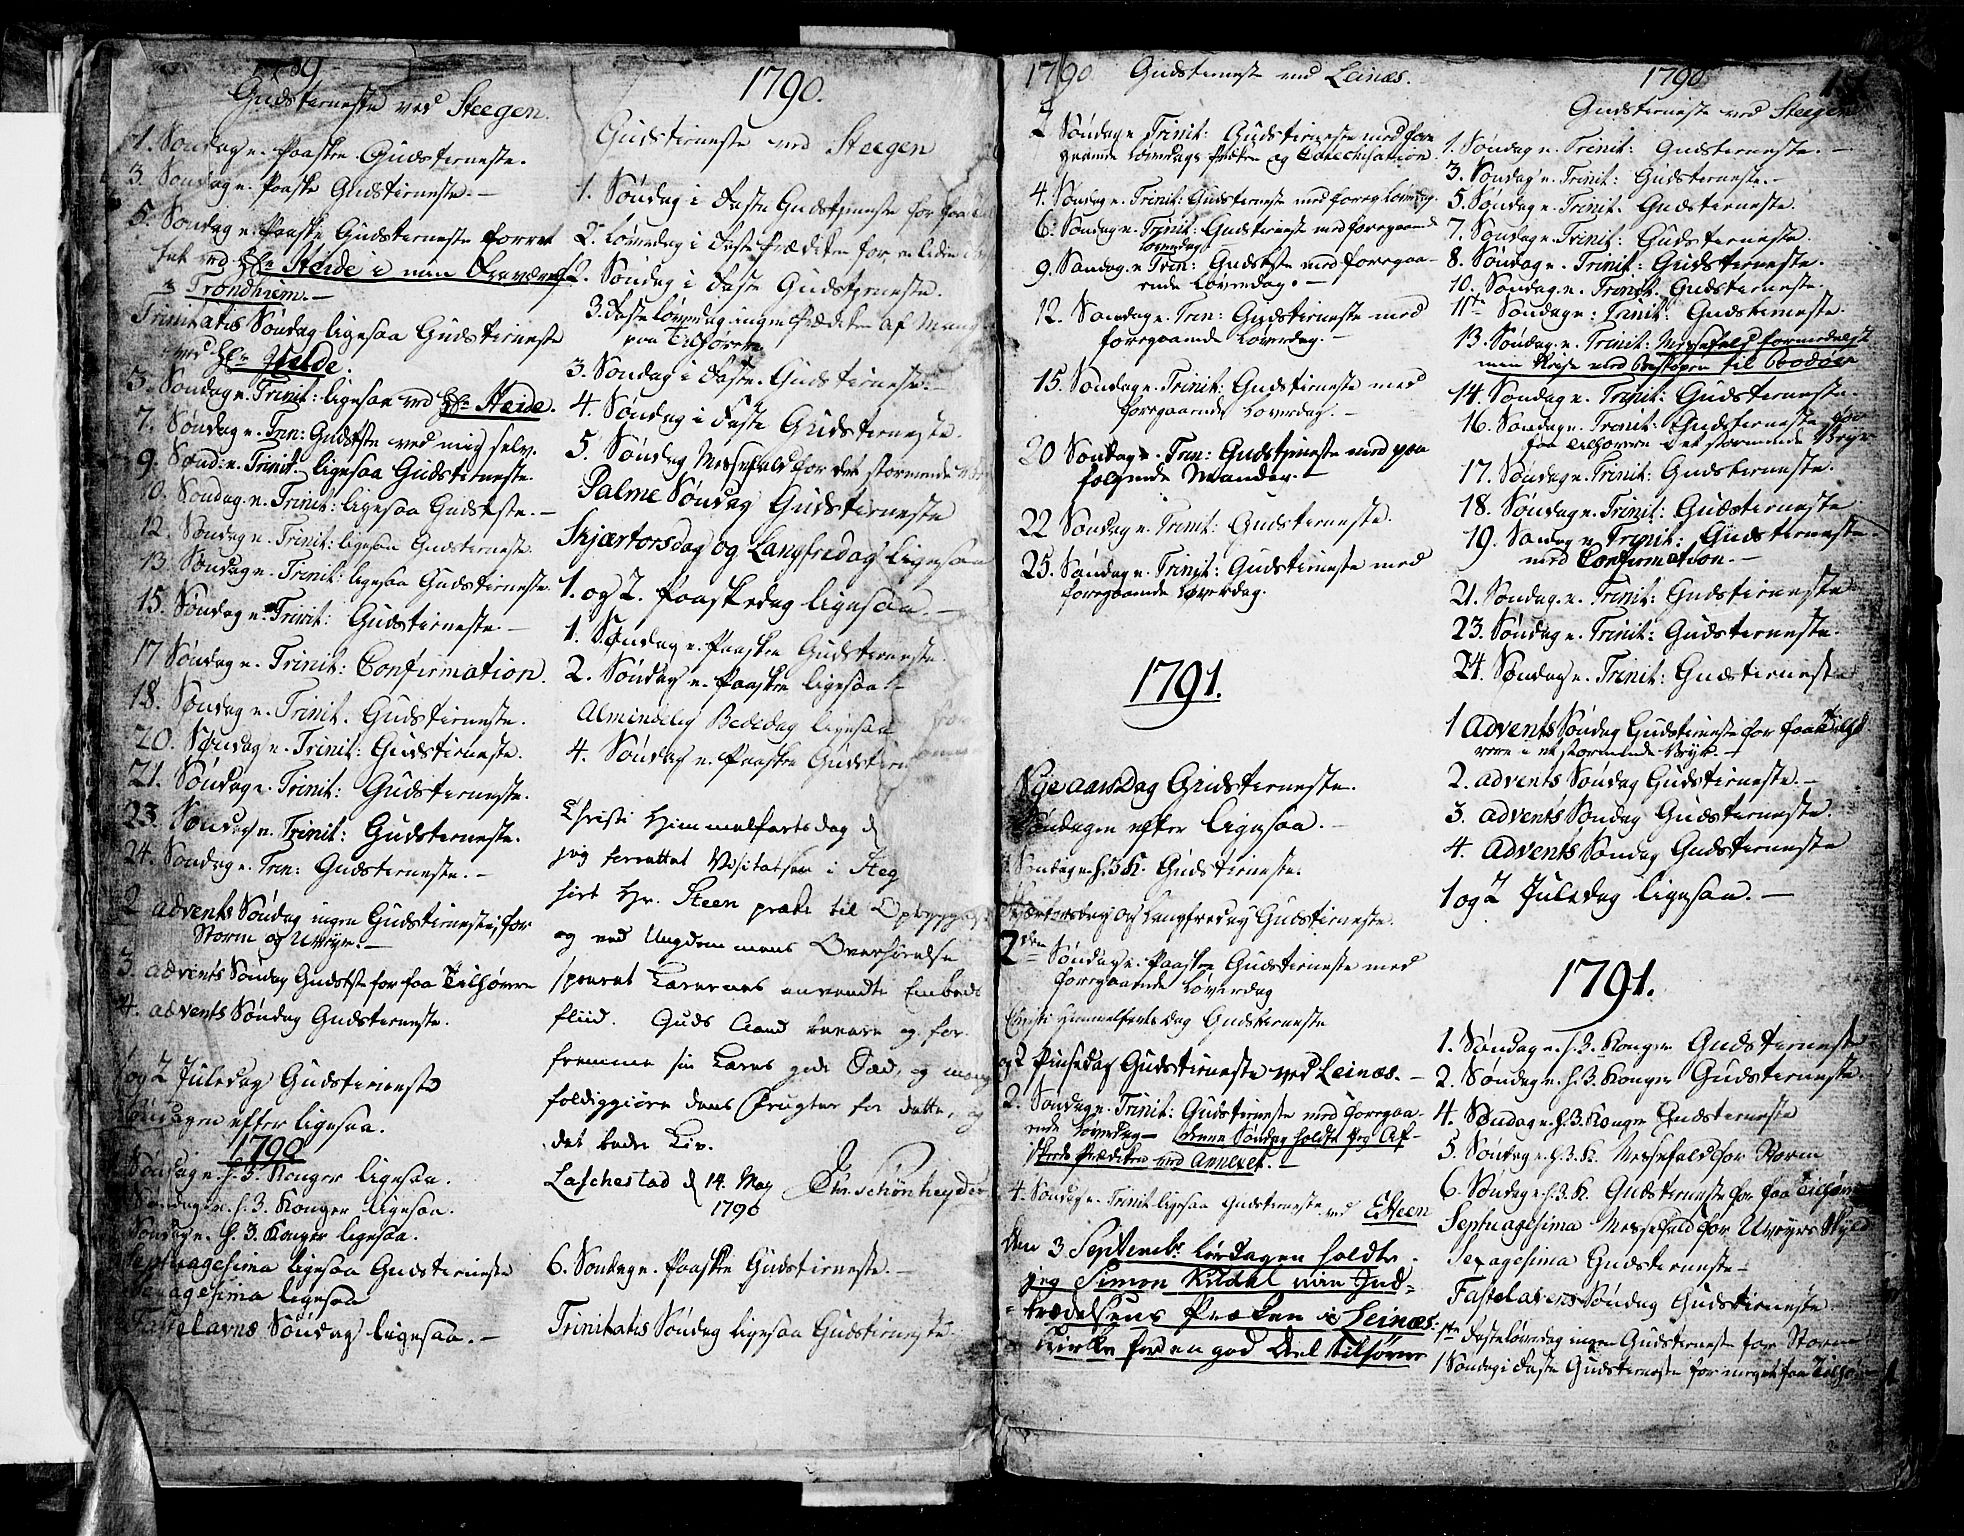 1789
Gudstierneste ved Steegen.
1. Søndag e. Paaske Gudstierneste.
3. Søndag e. Paaske Gudstierneste. –
5. Søndag e. Paaske Gudstierneste forret
tet ved Hr. Heide i min Fraværelse
Trondhiem. –
Trinitatis Søndag ligesaa Gudstierneste
ved Hr. Heide.
3. Søndag e. Trinit: ligesaa ved Hr. Heide.
7. Søndag e. Trin: Gudstste ved mig selv.
9. Sønd: e. Trinit – ligesaa Gudstierneste.
10. Søndag e. Trinit: ligesaa Gudstste. –
12. Søndag e. Trinit: ligesaa Gudstierneste.
13 Søndag e. Trinit: ligesaa Gudstierneste.
15. Søndag e. Trinit: Gudstierneste. –
17 Søndag e. Trinit: Confirmation.
18. Søndag e. Trinit. Gudstierneste.
20. Søndag e. Trinit: Gudstierneste.
21. Søndag e. Trinit: Gudstierneste.
23. Søndag e. Trinit: Gudstierneste.
24. Søndag e. Trin: Gudstierneste. –
2 Advents Søndag ingen Gudstierneste, for
Storm og Uveyr. –
3. Advents Søndag Gudstste for faa Tilhørere
4. Advents Søndag Gudstierneste.
1 og 2 Juledag Gudstierneste
Søndagen efter ligesaa.
1790
Søndag e. h. 3. Konger ligesaa.
Søndag e. h. 3 Konger ligesaa.
Søndag e. h. 3 Konger ligesaa.
Septuagesima ligesaa Gudstierneste
Sexagesima ligesaa
Fastelavns Søndag ligesaa. –
1790.
Gudstierneste ved Steegen
1. Søndag i Faste Gudstierneste for faa
2. Løverdag i Faste Prædiken for en liden
2. Søndag i Faste Gudstierneste.
3. Faste Løverdag ingen Prædiken af Mangel
paa Tilhørere
3. Søndag i Faste. Gudstierneste. –
4. Søndag i Faste Gudstierneste.
5. Søndag Messefald for det stormende
Palme Søndag Gudstierneste
Skjærtorsdag og Langfredag ligesaa
1. og 2. Paaskedag ligesaa. –
1. Søndag e. Paaske Gudstierneste.
2. Søndag e. Paaske ligesaa. –
Almindelig Bededag ligesaa
4. Søndag e. Paaske Gudstier
Christi Himmelfarts dag d
jeg forrettet Visitatsen i Steg
hørt Hr. Steen præke til Opbyggelse
og ved Ungdommens Overhørelse
sporet Lærernes anvendte Embeds
fliid. Guds Aand bevare og for
fremme sin Læres gode Sæd, og mang
foldiggiøre dens Frugter for dette, og
det bedre Liv.
Laschestad d 14. May
1790
Chr. Schönheyder
6. Søndag e. Paaske Gudstierneste. –
Trinitatis Søndag ligesaa Gudstierneste.
1790 Gudstierneste ved Leinæs.
2 Søndag e. Trinit: Gudstierneste med fore
gaaende Løverdags Præken og Catechisation.
4. Søndag e. Trinit: Gudstierneste med foreg. Løverdag.
6. Søndag e. Trinit: Gudstierneste med foregaaend
Løverdag
9. Søndag e. Trin: Gudstste med foregaa-
ende Løverdag. –
12. Søndag e. Trin: Gudstierneste med
foregaaende Løverdag. –
15. Søndag e. Trinit: Gudstierneste med
foregaaende Løverdag. –
20 Søndag e. Trin: Gudstierneste med paa
følgende Mandag. –
22 Søndag e. Trinit: Gudstierneste.
25. Søndag e. Trinit: Gudstierneste med
foregaaende Løverdag.
1791.
Nye aars Dag Gudstierneste.
Søndagen efter ligesaa. –
Søndag e. h. 3 K. Gudstierneste.
Skiærtorsdag og Langfredag Gudstierneste.
2den Søndag e. Paaske Gudstierneste med
foregaaende Løverdag
Christi Himmelfarts dag Gudstierneste
og 2 Pinsedag Gudstierneste ved Leinæs. –
2. Søndag e. Trinit: Gudstierneste med foregaa-
ende Løverdag – denne Søndag holdte jeg Af-
skeds Prædiken ved Annexet. –
4. Søndag e. Trinit ligesaa Gudstierneste ved E Steen
den 3 Septembr. Lørdagen holdte
jeg Simon Kildal min Ind-
trædelsens Præken i Leinæs
Kirke for en god Deel tilhører
1790
Gudstierneste ved Steegen
1. Søndag e. Trinit: Gudstierneste. –
3. Søndag e. Trinit: Gudstierneste. –
5. Søndag e. Trinit. Gudstierneste.
7. Søndag e. Trinit: Gudstierneste.
8. Søndag e. Trinit: Gudstierneste.
10. Søndag e. Trinit. Gudstierneste.
11te Søndag e: Trinit: Gudstierneste.
13. Søndag e. Trinit: Messefald formedelst
min Reise med Bispen til Bodøe
14. Søndag e. Trinit: Gudstierneste.
16. Søndag e. Trinit: Gudstierneste for
faa Tilhørere det stormende Veyr
17. Søndag e. Trinit: Gudstierneste.
18. Søndag e. Trinit: Gudstierneste
19. Søndag e. Trinit: Gudstierneste
med Confirmation. –
21. Søndag e. Trinit: Gudstierneste
23. Søndag e. Trinit: Gudstierneste.
24. Søndag e. Trinit: Gudstierneste
1 Advents Søndag Gudstierneste for faa Tilhø
rere i et stormende Veyr. –
2. Advents Søndag Gudstierneste. –
3. Advents Søndag Gudstierneste.
4. Advents Søndag Gudstierneste
1 og 2 Juledag ligesaa. –
1791.
1. Søndag e. h. 3. Konger Gudstierneste
2. Søndag e. h. 3 Konger Gudstierneste.
4. Søndag e. h. 3. Konger Gudstierneste
5. Søndag e. h. 3. K. Messefald for Storm
6. Søndag e. h. 3. K. Gudstierneste for faa Tilhørere
Septuagesima Messefald for Uveyrs Skyld
Sexagesima Gudstierneste –
Fastelavens Søndag Gudstierneste
1ste Faste Løverdag ingen Gudstierneste for Storm
1 Søndag i Faste Gudstierneste for meget faa Tilhø